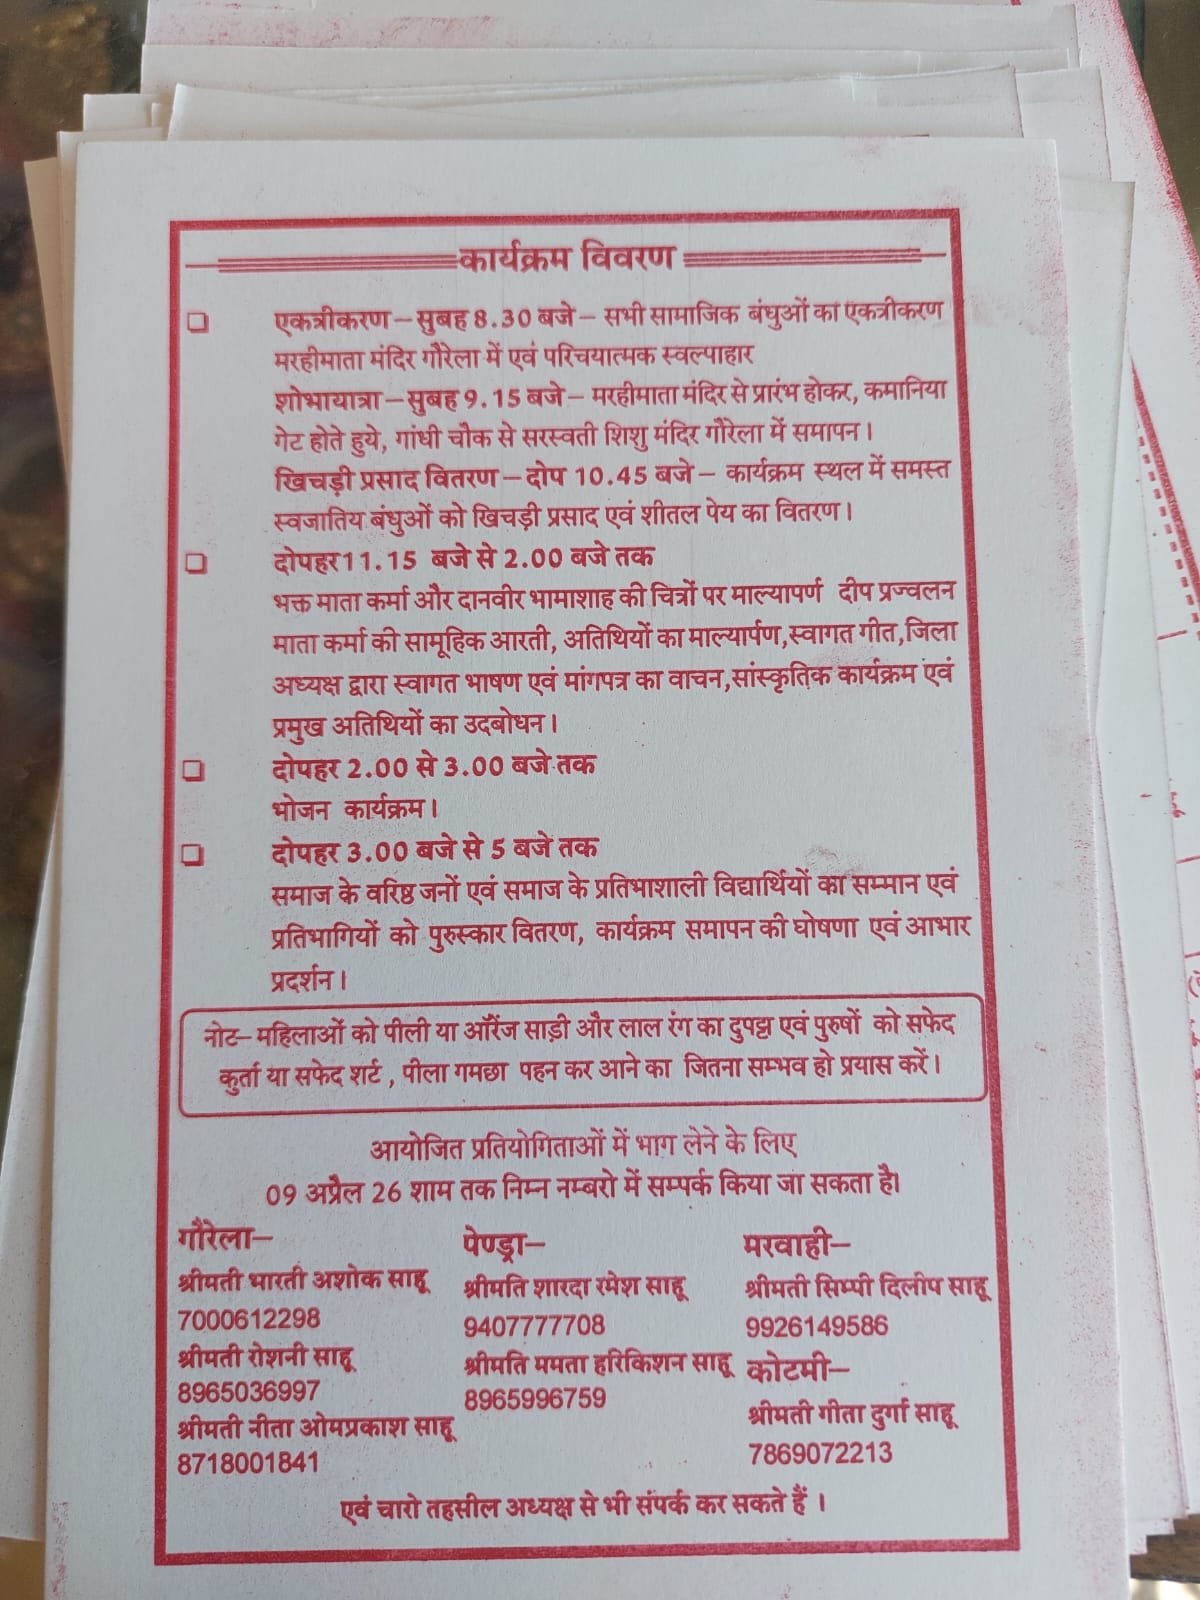 कार्यक्रम विवरण
❏ एकत्रीकरण – सुबह 8.30 बजे – सभी सामाजिक बंधुओं का एकत्रीकरण
मरहीमाता मंदिर गौरेला में एवं परिचयात्मक स्वल्पाहार
शोभायात्रा – सुबह 9.15 बजे – मरहीमाता मंदिर से प्रारंभ होकर, कमानिया
गेट होते हुये, गांधी चौक से सरस्वती शिशु मंदिर गौरेला में समापन।
खिचड़ी प्रसाद वितरण – दोप 10.45 बजे – कार्यक्रम स्थल में समस्त
स्वजातिय बंधुओं को खिचड़ी प्रसाद एवं शीतल पेय का वितरण।
❏ दोपहर 11.15 बजे से 2.00 बजे तक
भक्त माता कर्मा और दानवीर भामाशाह की चित्रों पर माल्यापर्ण दीप प्रज्वलन
माता कर्मा की सामूहिक आरती, अतिथियों का माल्यार्पण,स्वागत गीत,जिला
अध्यक्ष द्वारा स्वागत भाषण एवं मांगपत्र का वाचन,सांस्कृतिक कार्यक्रम एवं
प्रमुख अतिथियों का उदबोधन।
❏ दोपहर 2.00 से 3.00 बजे तक
भोजन कार्यक्रम।
❏ दोपहर 3.00 बजे से 5 बजे तक
समाज के वरिष्ठ जनों एवं समाज के प्रतिभाशाली विद्यार्थियों का सम्मान एवं
प्रतिभागियों को पुरुस्कार वितरण, कार्यक्रम समापन की घोषणा एवं आभार
प्रदर्शन।
नोट– महिलाओं को पीली या ऑरेंज साड़ी और लाल रंग का दुपट्टा एवं पुरुषों को सफेद
कुर्ता या सफेद शर्ट , पीला गमछा पहन कर आने का जितना सम्भव हो प्रयास करें।
आयोजित प्रतियोगिताओं में भाग लेने के लिए
09 अप्रैल 26 शाम तक निम्न नम्बरो में सम्पर्क किया जा सकता है।
गौरेला–
श्रीमती भारती अशोक साहू
7000612298
श्रीमती रोशनी साहू
8965036997
श्रीमती नीता ओमप्रकाश साहू
8718001841
पेण्ड्रा–
श्रीमति शारदा रमेश साहू
9407777708
श्रीमति ममता हरिकिशन साहू
8965996759
मरवाही–
श्रीमती सिम्पी दिलीप साहू
9926149586
कोटमी–
श्रीमती गीता दुर्गा साहू
7869072213
एवं चारो तहसील अध्यक्ष से भी संपर्क कर सकते हैं ।